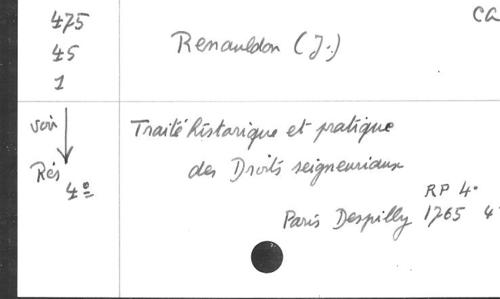 475
45
1
ca
Renauldon (J.)
voir
Rés
4º
Traité historique et pratique
des Droits seigneuriaux
RP 4º
Paris Despilly 1765 4